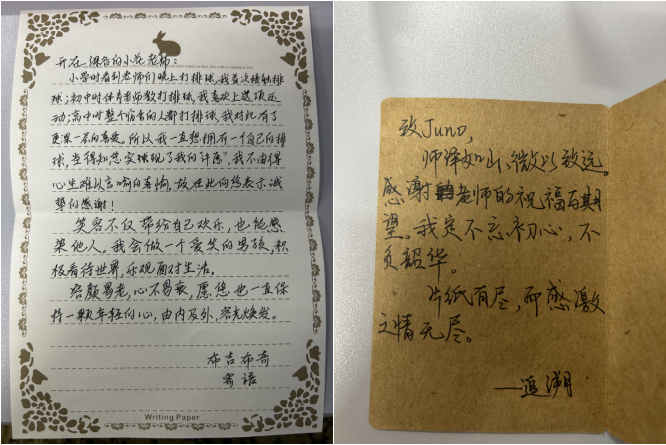 开在深谷的小花老师：
小学时看到老师们晚上打排球，我首次接触排
球；初中时体育老师教打排球，我喜欢上这项运
动；高中时整个宿舍的人都打排球，我对此有了
更深一层的喜爱。所以我一直想拥有一个自己的排
球，当得知您实现了我的"许愿"，我不由得
心生难以言喻的喜悦。故在此向您表示诚
挚的感谢！
笑容不仅带给自己欢乐，也能感
染他人，我会做一个爱笑的男孩，积
极看待世界，乐观面对生活。
容颜易老，心不易衰，愿您也一直保
持一颗年轻的心，由内及外，容光焕发。
布吉布奇
寄语
Writing Paper
致Juno，
师泽如山，微以致远。
感谢老师的祝福与期
望。我定不忘初心，不
负韶华。
片纸有尽，而感激
之情无尽。
——追溯